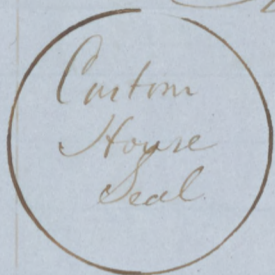 Custom
House
Seal